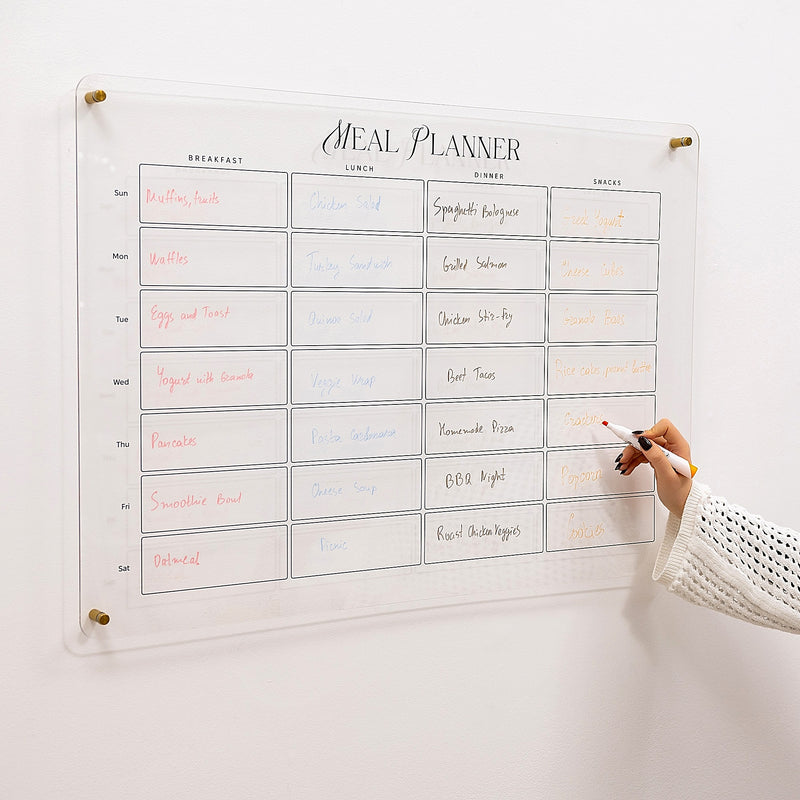 MEAL PLANNER
BREAKFAST LUNCH DINNER SNACKS
Sun Muffins, fruits Chicken Salad Spaghetti Bolognese Yogurt
Mon Waffles Turkey Sandwich Grilled Salmon Cheese Cubes
Tue Eggs and Toast Quinoa Salad Chicken Stir-fry Granola Bars
Wed Yogurt with Granola Veggie Wrap Beef Tacos Rice cakes peanut butter
Thu Pancakes Pasta Carbonara Homemade Pizza Crackers
Fri Smoothie Bowl Cheese Soup BBQ Night Popcorn
Sat Oatmeal Picnic Roast Chicken Veggies Cookies